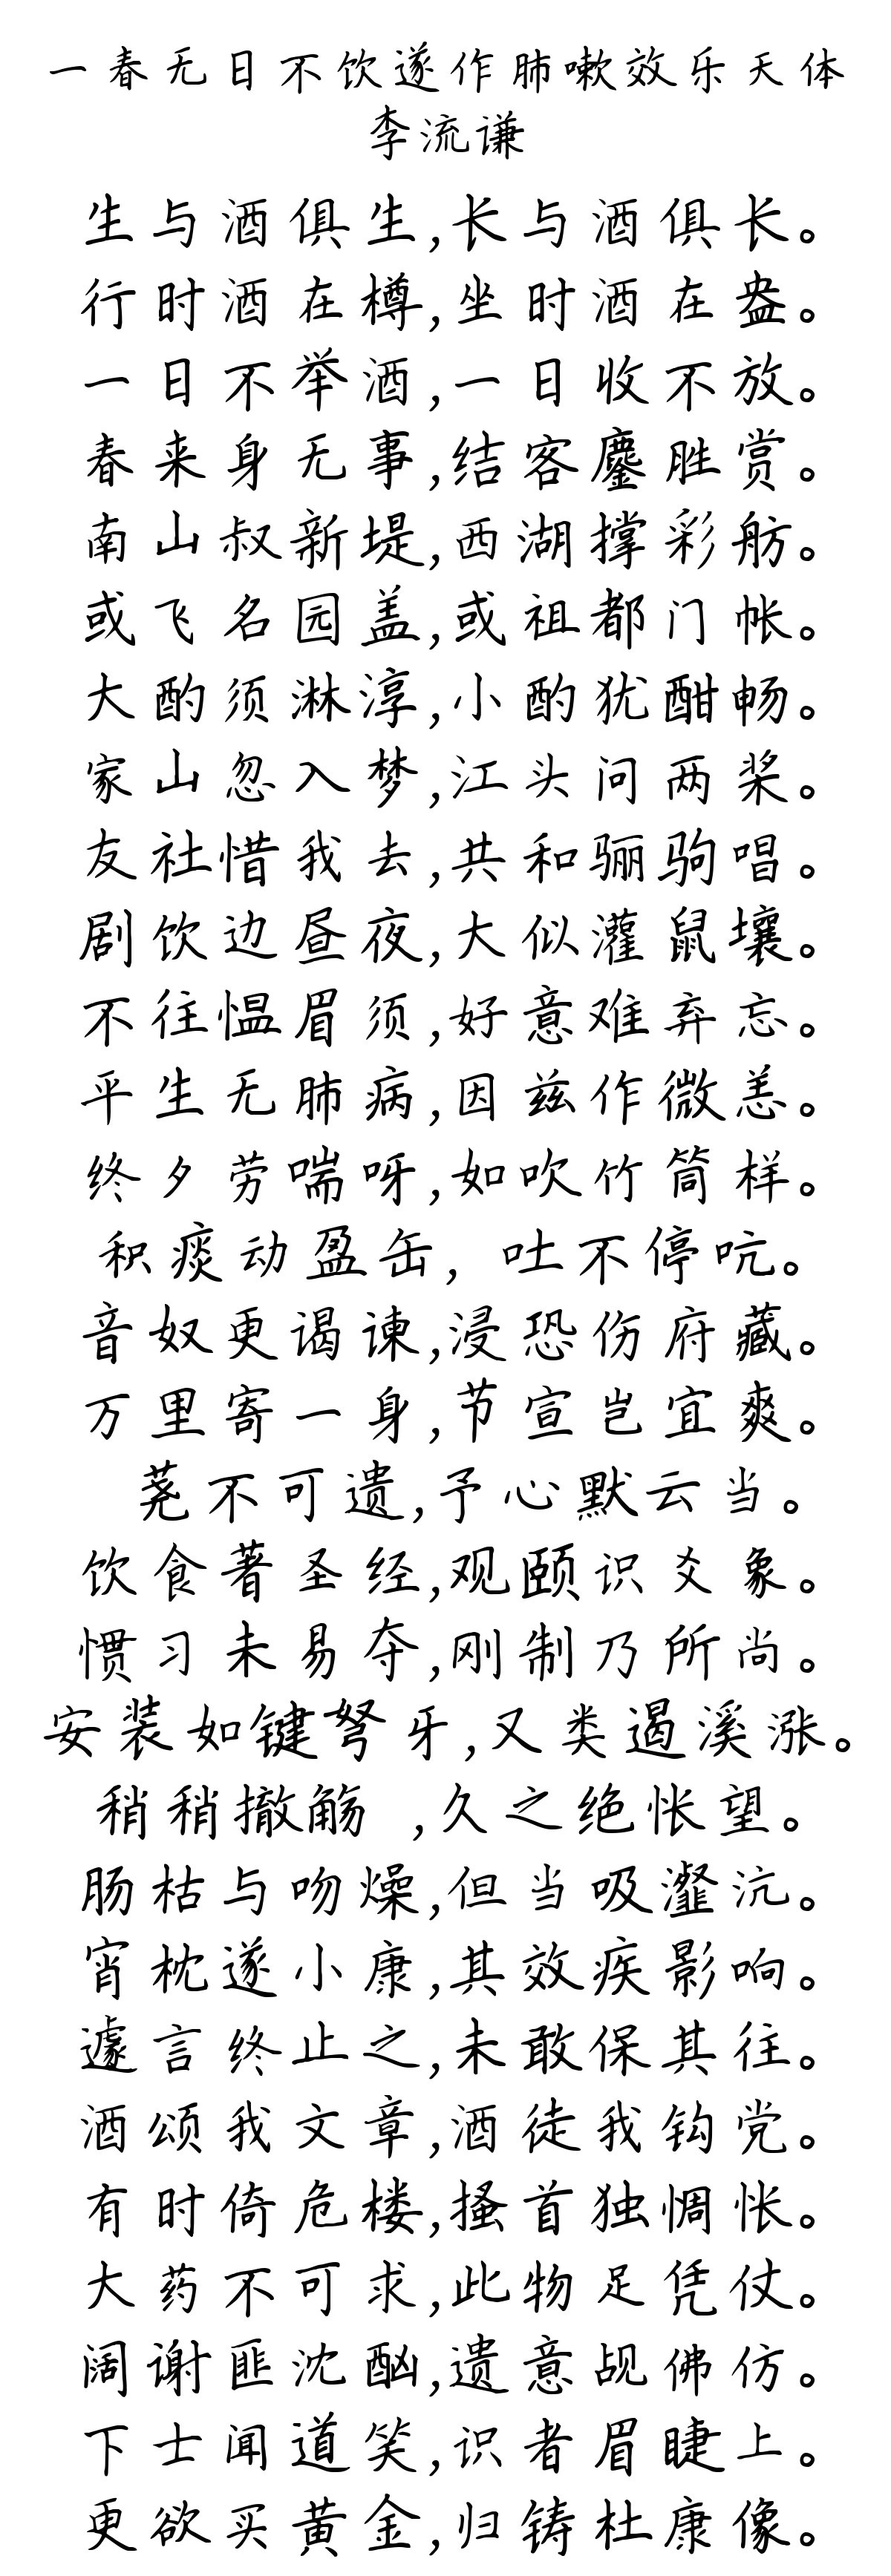 一春无日不饮遂作肺嗽效乐天体
李流谦
生与酒俱生,长与酒俱长。
行时酒在樽,坐时酒在盎。
一日不举酒,一日收不放。
春来身无事,结客鏖胜赏。
南山叔新堤,西湖撑彩舫。
或飞名园盖,或祖都门帐。
大酌须淋淳,小酌犹酣畅。
家山忽入梦,江头问两桨。
友社惜我去,共和骊驹唱。
剧饮边昼夜,大似灌鼠壤。
不往愠眉须,好意难弃忘。
平生无肺病,因兹作微恙。
终夕劳喘呀,如吹竹筒样。
积痰动盈缶,吐不停吭。
音奴更谒谏,浸恐伤府藏。
万里寄一身,节宣岂宜爽。
荛不可遗,予心默云当。
饮食著圣经,观颐识爻象。
惯习未易夺,刚制乃所尚。
安装如键弩牙,又类遏溪涨。
稍稍撤觞,久之绝怅望。
肠枯与吻燥,但当吸瀣沆。
宵枕遂小康,其效疾影响。
遽言终止之,未敢保其往。
酒颂我文章,酒徒我钩党。
有时倚危楼,搔首独惆怅。
大药不可求,此物足凭仗。
阔谢匪沈酗,遗意觇佛仿。
下士闻道笑,识者眉睫上。
更欲买黄金,归铸杜康像。